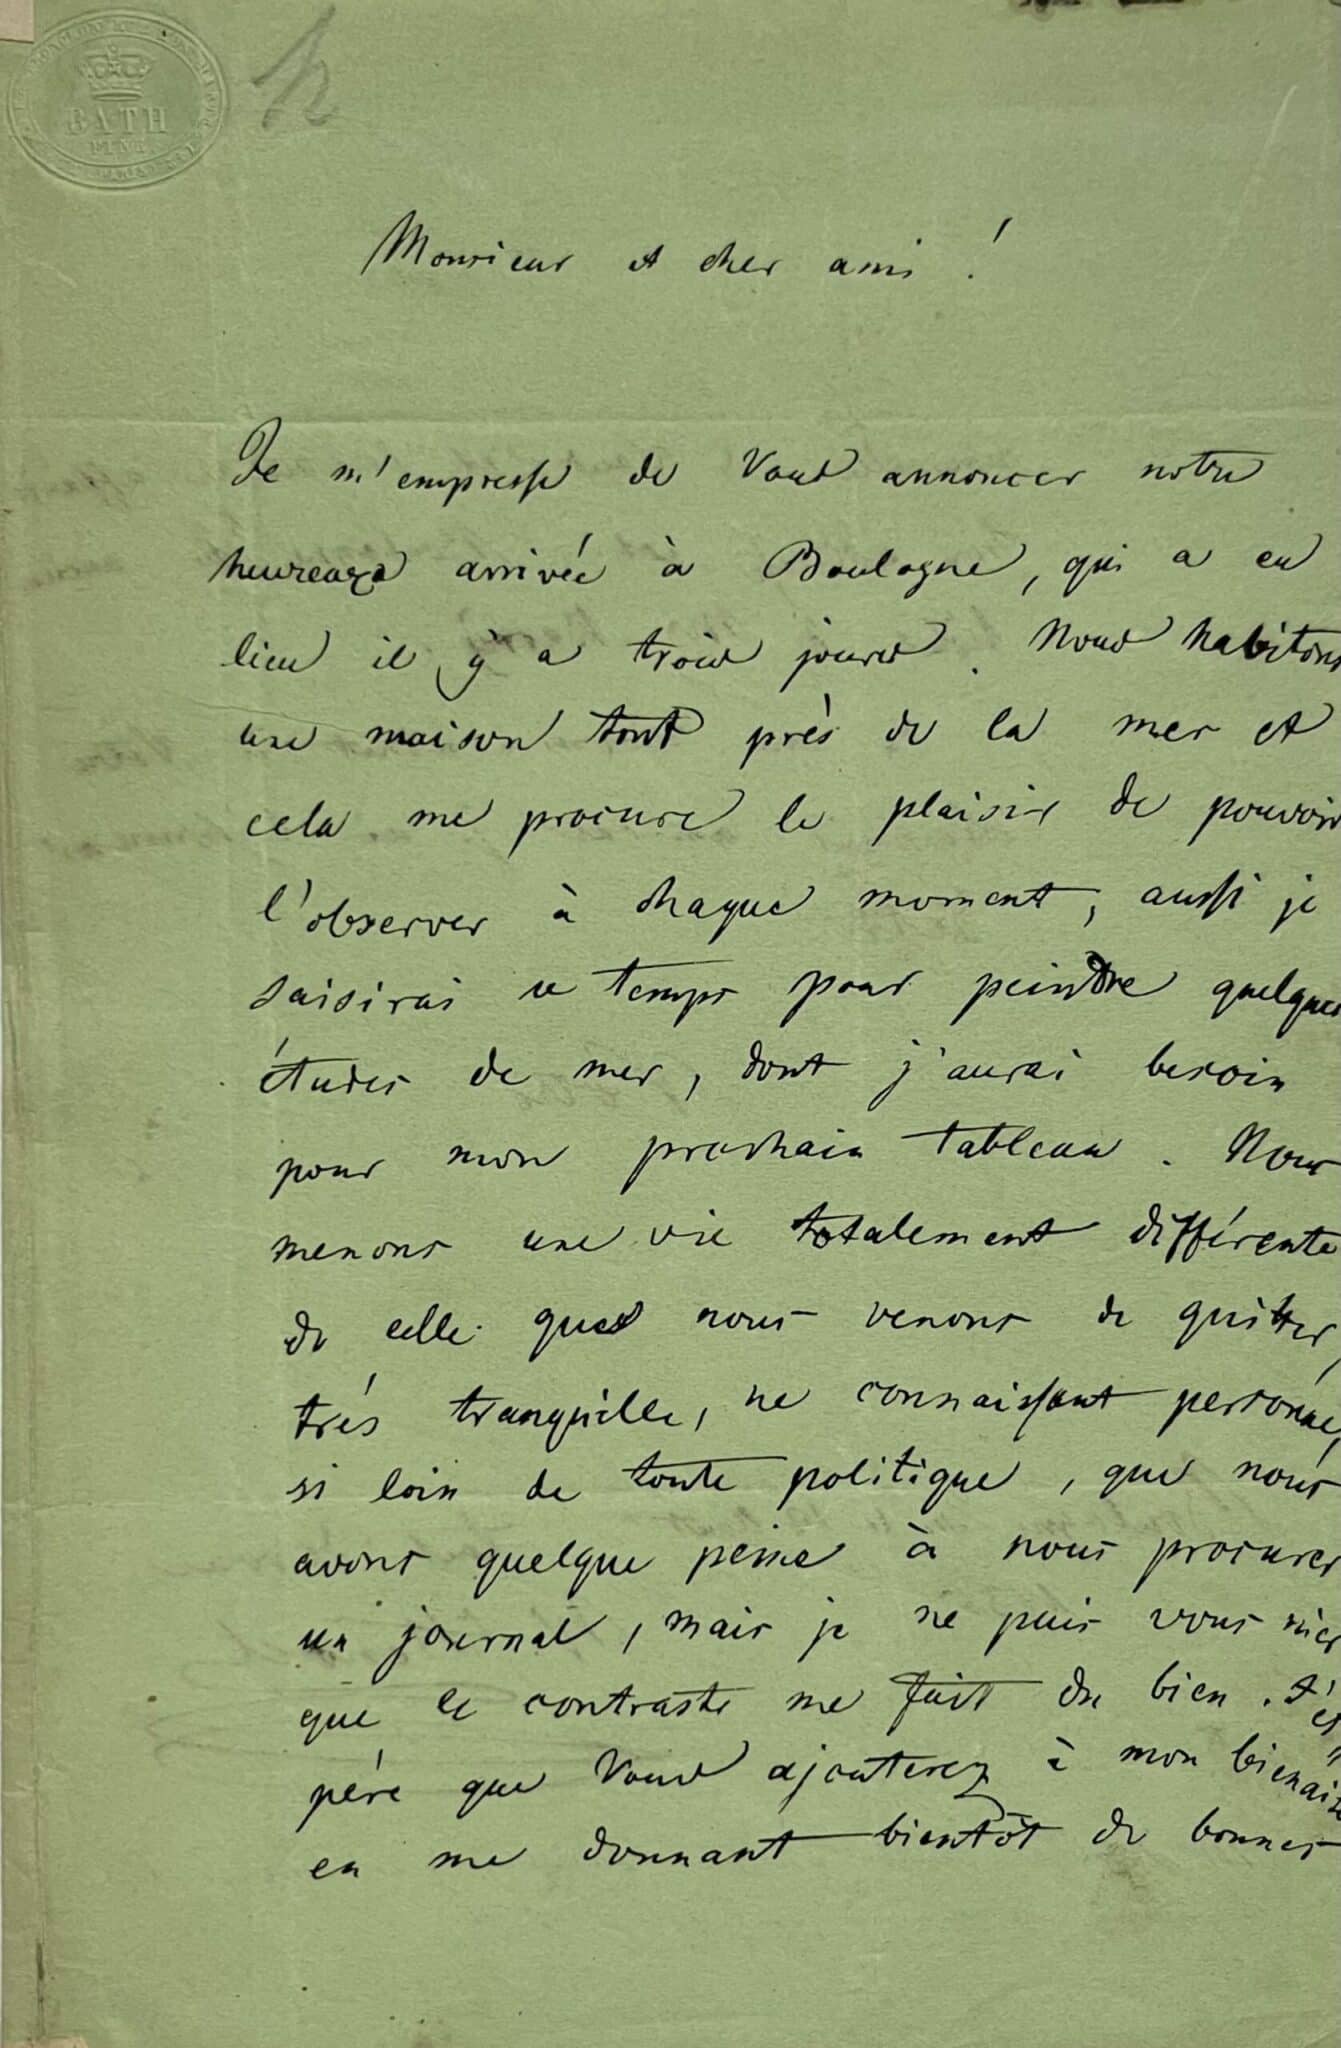 BATH
h
Monsieur et cher ami !
Je m'empresse de Vous annoncer notre
heureuse arrivée à Boulogne, qui a eu
lieu il y a trois jours. Nous habitons
une maison tout près de la mer et
cela me procure le plaisir de pouvoir
l'observer à chaque moment, aussi je
saisirai ce temps pour peindre quelques
études de mer, dont j'aurai besoin
pour mon prochain tableau. Nous
menons une vie totalement différente
de celle que nous venons de quitter,
trés tranquille, ne connaissant personne,
si loin de toute politique, que nous
avons quelque peine à nous procurer
un journal, mais je ne puis vous nier
que le contraste me fait du bien. J'es
père que Vous ajouterez à mon bienaise
en me donnant bientôt de bonnes